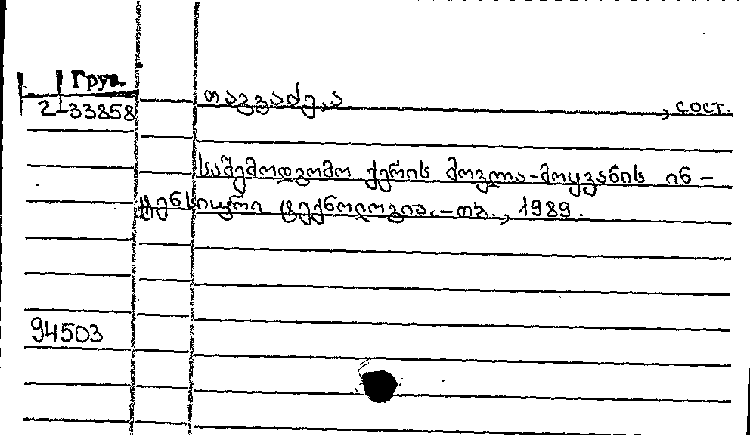 Груз.
2-33858
თავვაძე, ა , сост.
საშემოდგომო ქერის მოვლა-მოყვანის ინ-
ტენსიური ტექნოლოგია.-თბ., 1989.
94503